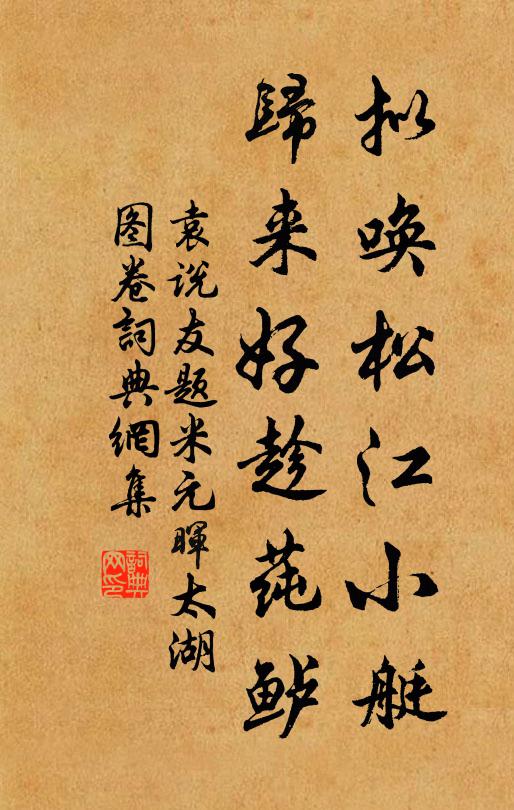 拟唤松江小艇
歸来好趁莼鲈
袁说友题米元暉太湖
图卷詞典網集
詞典网印